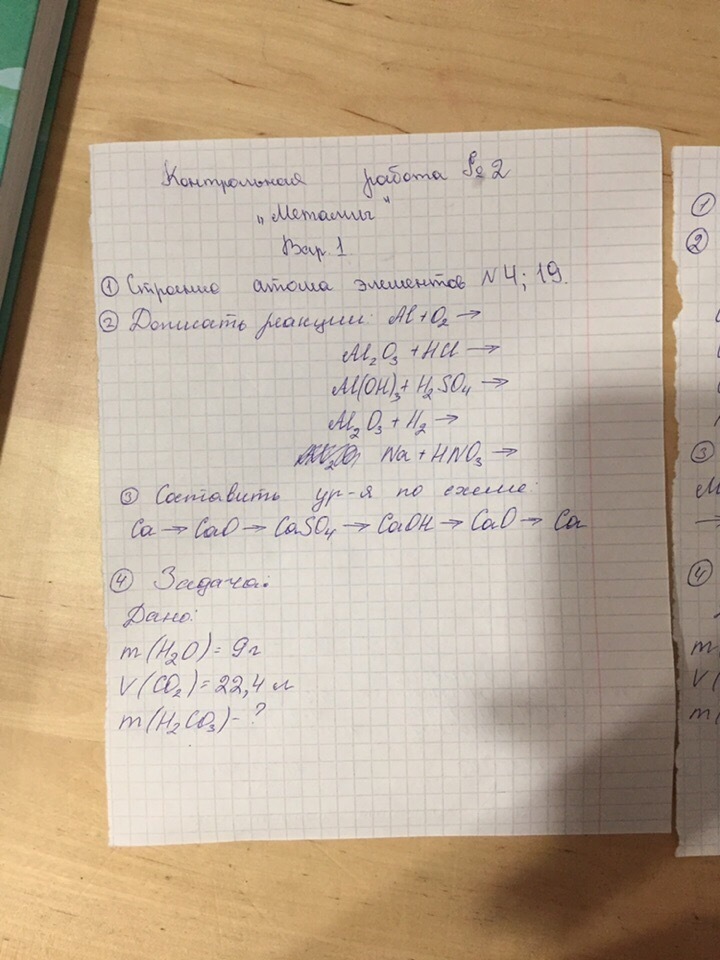 Контрольная работа №2
„Металлы"
Вар. 1
① Строение атома элементов N4; 19.
② Дописать реакции: Al + O₂ →
Al₂O₃ + HCl →
Al(OH)₃ + H₂SO₄ →
Al₂O₃ + H₂ →
Na + HNO₃ →
③ Составить ур-я по схеме:
Ca → CaO → CaSO₄ → CaOH → CaO → Ca
④ Задача:
Дано:
m(H₂O) = 9г
V(CO₂) = 22,4 л
m(H₂CO₃) - ?
①
②
③
④
m
V(
m(